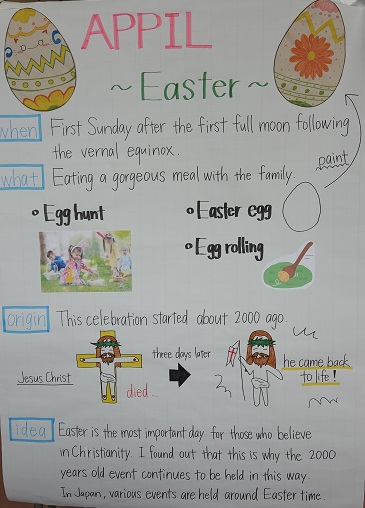 APPIL
~ Easter ~
when First Sunday after the first full moon following
the vernal equinox.
what Eating a gorgeous meal with the family.
paint
• Egg hunt
• Easter egg
• Egg rolling
origin This celebration started about 2000 ago.
Jesus Christ
died...
three days later
he came back
to life!
idea Easter is the most important day for those who believe
in Christianity. I found out that this is why the 2000
years old event continues to be held in this way.
In Japan, various events are held around Easter time.